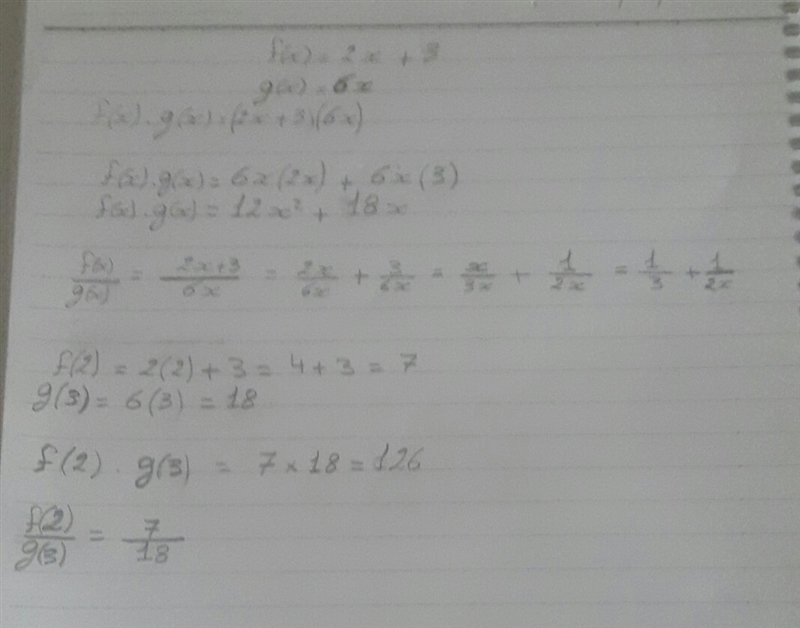 f(x) = 2x + 3
g(x) = 6x
f(x) · g(x) = (2x + 3)(6x)
f(x) · g(x) = 6x(2x) + 6x(3)
f(x) · g(x) = 12x² + 18x
f(x)/g(x) = 2x+3/6x = 2x/6x + 3/6x = x/3x + 1/2x = 1/3 + 1/2x
f(2) = 2(2) + 3 = 4 + 3 = 7
g(3) = 6(3) = 18
f(2) · g(3) = 7 × 18 = 126
f(2)/g(3) = 7/18